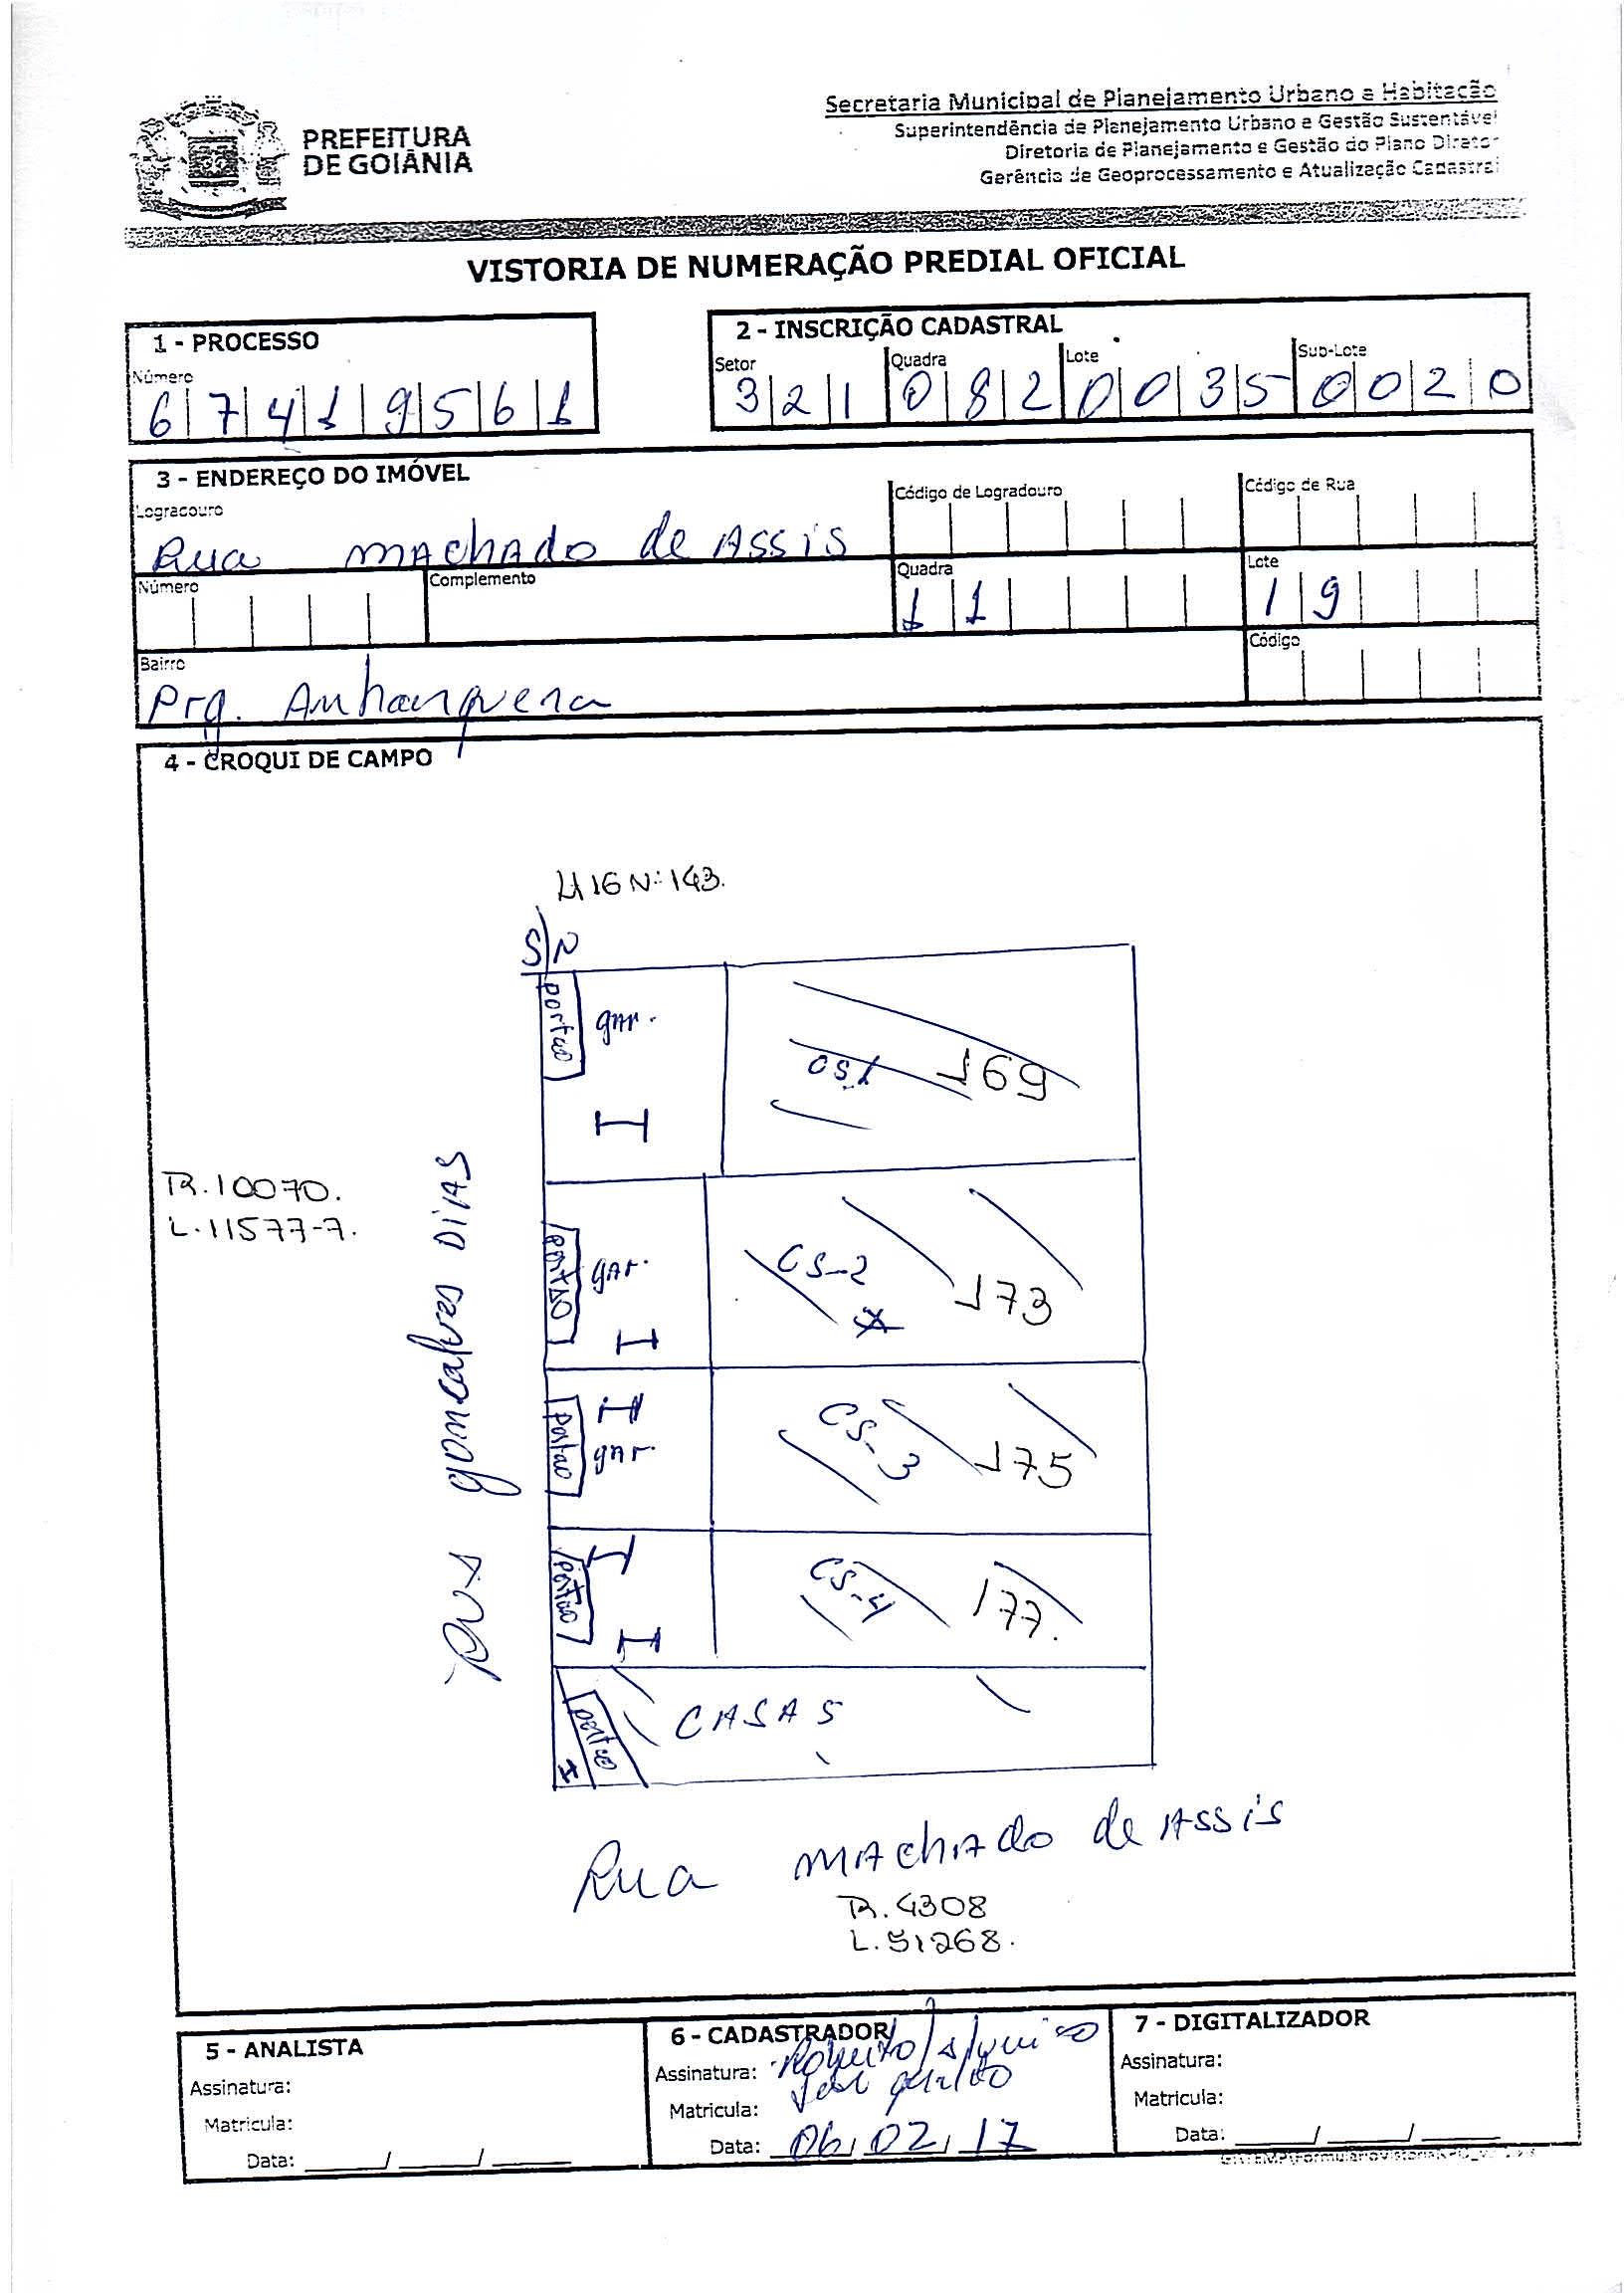 PREFEITURA
DE GOIÂNIA
Secretaria Municipal de Planejamento Urbano e Habitação
Superintendência de Planejamento Urbano e Gestão Sustentável
Diretoria de Planejamento e Gestão do Plano Diretor
Gerência de Geoprocessamento e Atualização Cadastral
VISTORIA DE NUMERAÇÃO PREDIAL OFICIAL
1 - PROCESSO
Número
6 7 4 1 9 5 6 1
2 - INSCRIÇÃO CADASTRAL
Setor Quadra Lote Sub-Lote
3 2 1 0 8 2 0 0 3 5 0 0 2 0
3 - ENDEREÇO DO IMÓVEL
Logradouro Código de Logradouro Código de Rua
Rua MAchADo de Assis
Número Complemento Quadra Lote
1 1 1 9
Bairro Código
Prq. Anhanguera
4 - CROQUI DE CAMPO
Lt 16 Nº: 143.
S/N
portão gAr.
CS1 169
I
R. 10070.
L. 11577-7.
Rua gonçalves DiAS
portão gAr.
CS-2 173
I
I
portão gAr.
CS-3 175
I
portão
CS-4 177.
I
portão CASA 5
I
Rua MAchADo de Assis
R. 4308
L. 51268.
5 - ANALISTA
Assinatura:
Matricula:
Data: ____/____/____
6 - CADASTRADOR
Assinatura:
Matricula:
Data: 06/02/17
7 - DIGITALIZADOR
Assinatura:
Matricula:
Data: ____/____/____